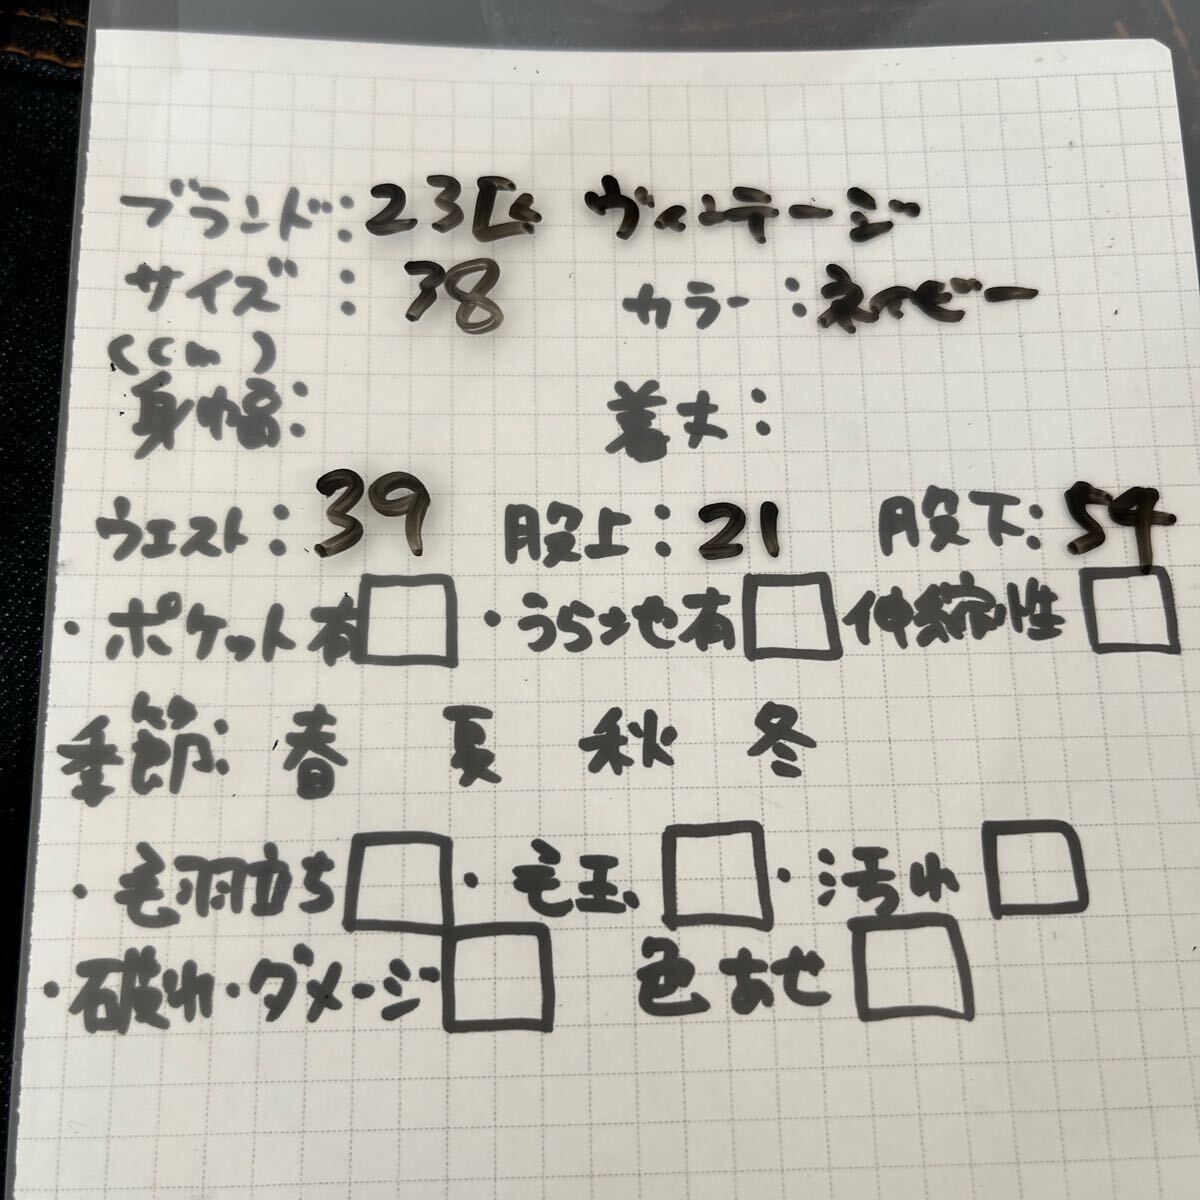 ブランド:23区 ヴィンテージ
サイズ:38 カラー:ネイビー
(cm)
身幅: 着丈:
ウエスト:39 股上:21 股下:54
・ポケット有 ・うら地有 伸縮性
季節: 春 夏 秋 冬
・毛羽立ち ・毛玉 ・汚れ
・破れ・ダメージ 色あせ